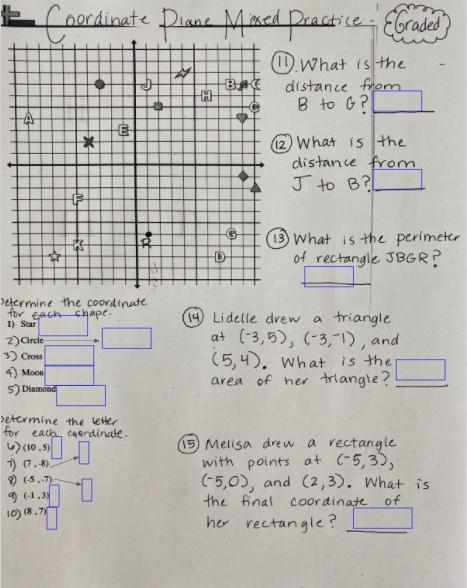 Coordinate Plane Mixed Practice -
Graded
J
B
H
C
A
E
F
K
R
G
D
11. What is the
distance from
B to G?
12. What is the
distance from
J to B?
13. What is the perimeter
of rectangle JBGR?
Determine the coordinate
for each shape.
1) Star
2) Circle
3) Cross
4) Moon
5) Diamond
Determine the letter
for each coordinate.
6) (10,5)
7) (7,-8)
8) (-5,-7)
9) (-1,3)
10) (8,7)
14 Lidelle drew a triangle
at (-3,5), (-3,-1), and
(5,4). What is the
area of her triangle?
15 Melisa drew a rectangle
with points at (-5,3),
(-5,0), and (2,3). What is
the final coordinate of
her rectangle?